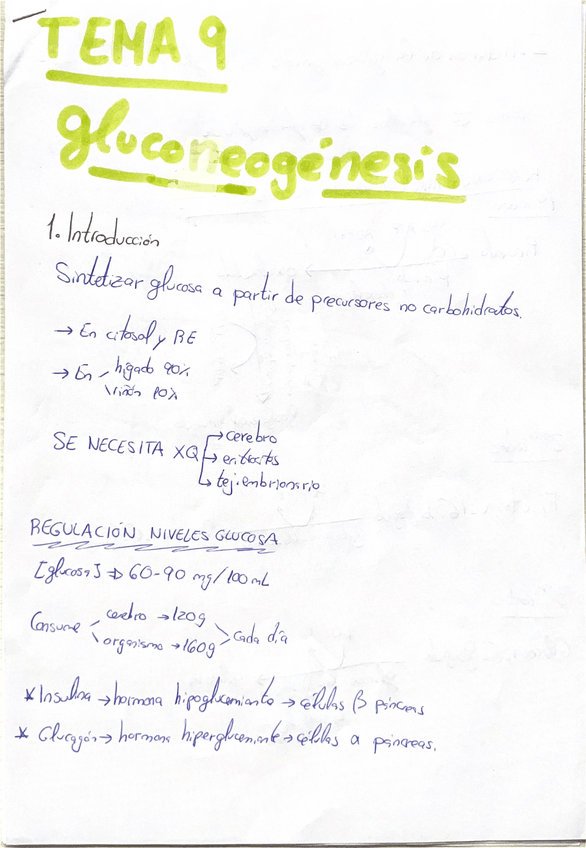 TEMA 9
gluconeogénesis
1. Introducción
Sintetizar glucosa a partir de precursores no carbohidratos.
→ En citosol y RE
→ En hígado 90%
riñón 10%
SE NECESITA XQ → cerebro
→ eritrocitos
→ tej. embrionario
REGULACIÓN NIVELES GLUCOSA
[glucosa] ⇒ 60-90 mg/100mL
Consume cerebro → 120g
organismo → 160g cada día
* Insulina → hormona hipoglucemiante → células β páncreas
* Glucagón → hormona hiperglucemiante → células α páncreas.